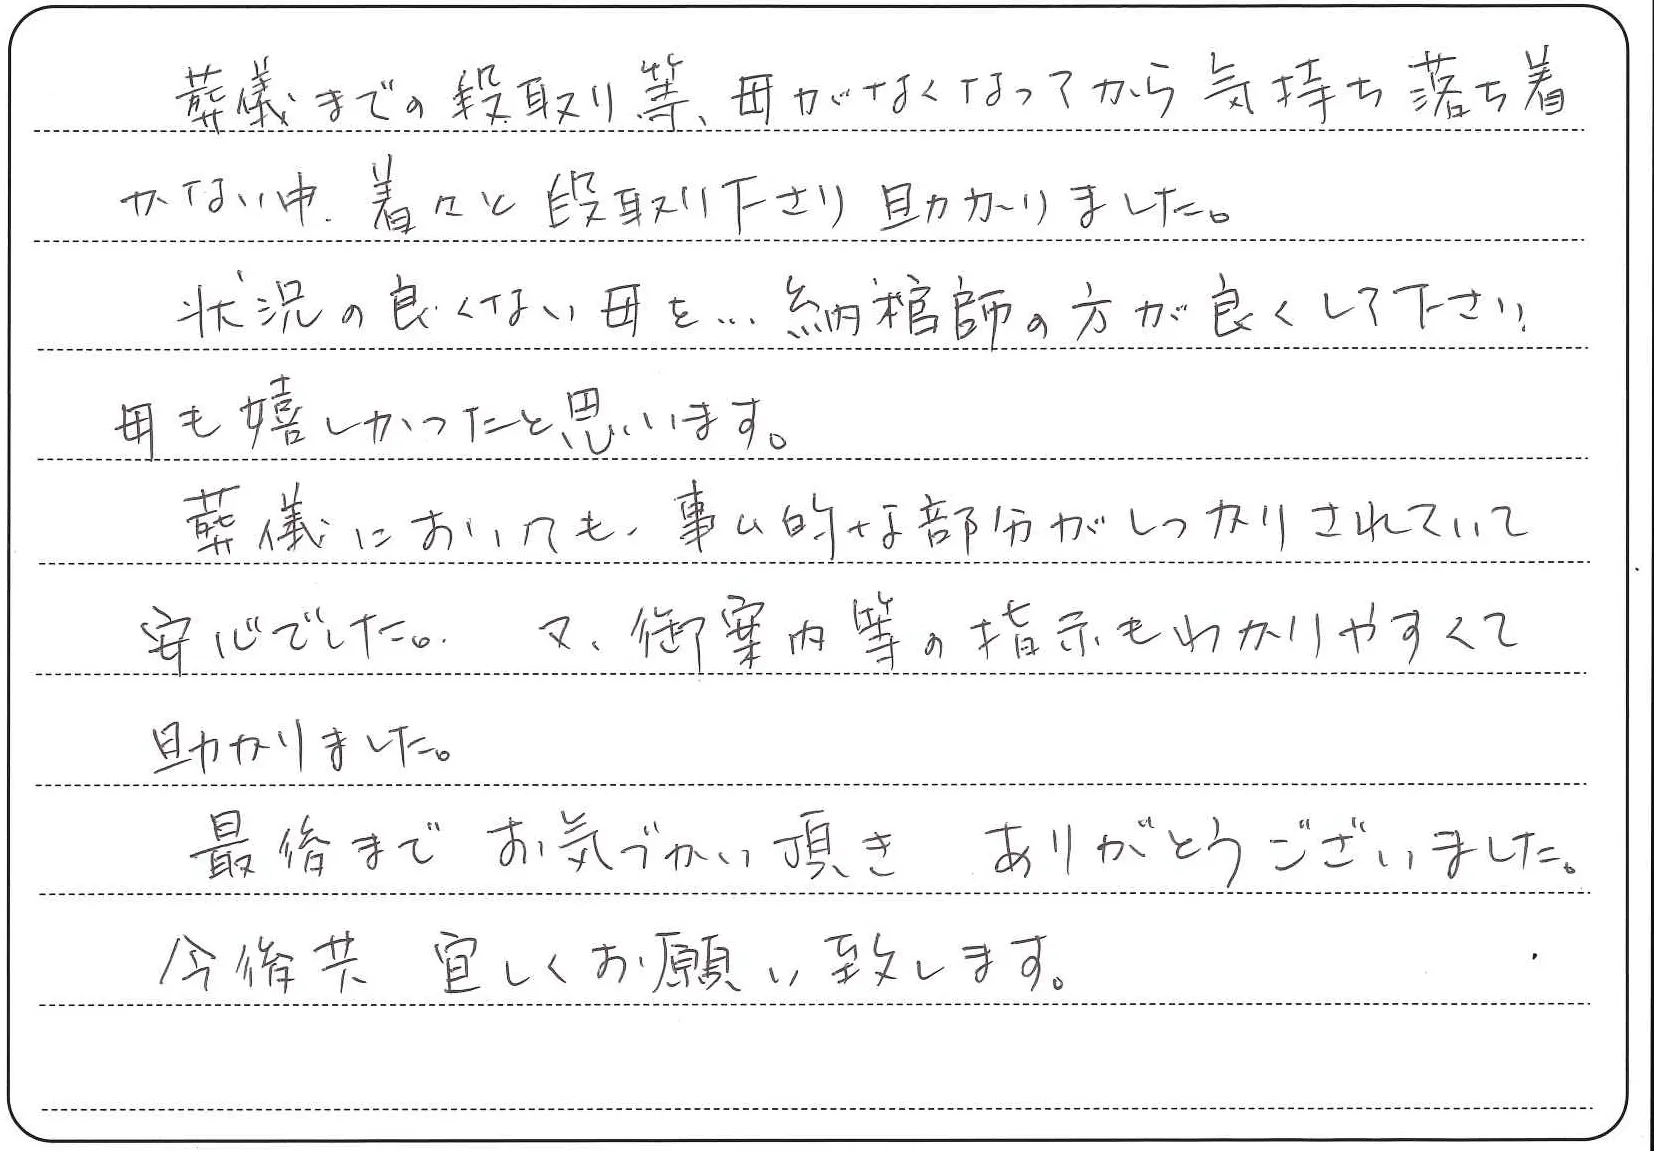 葬儀までの段取り等、母がなくなってから気持ち落ち着
かない中、着々と段取り下さり助かりました。
状況の良くない母を…納棺師の方が良くして下さい
母も嬉しかったと思います。
葬儀においても、事ム的な部分がしっかりされていて
安心でした。 又、御案内等の指示もわかりやすくて
助かりました。
最後まで お気づかい頂き ありがとうございました。
今後共 宜しくお願い致します。